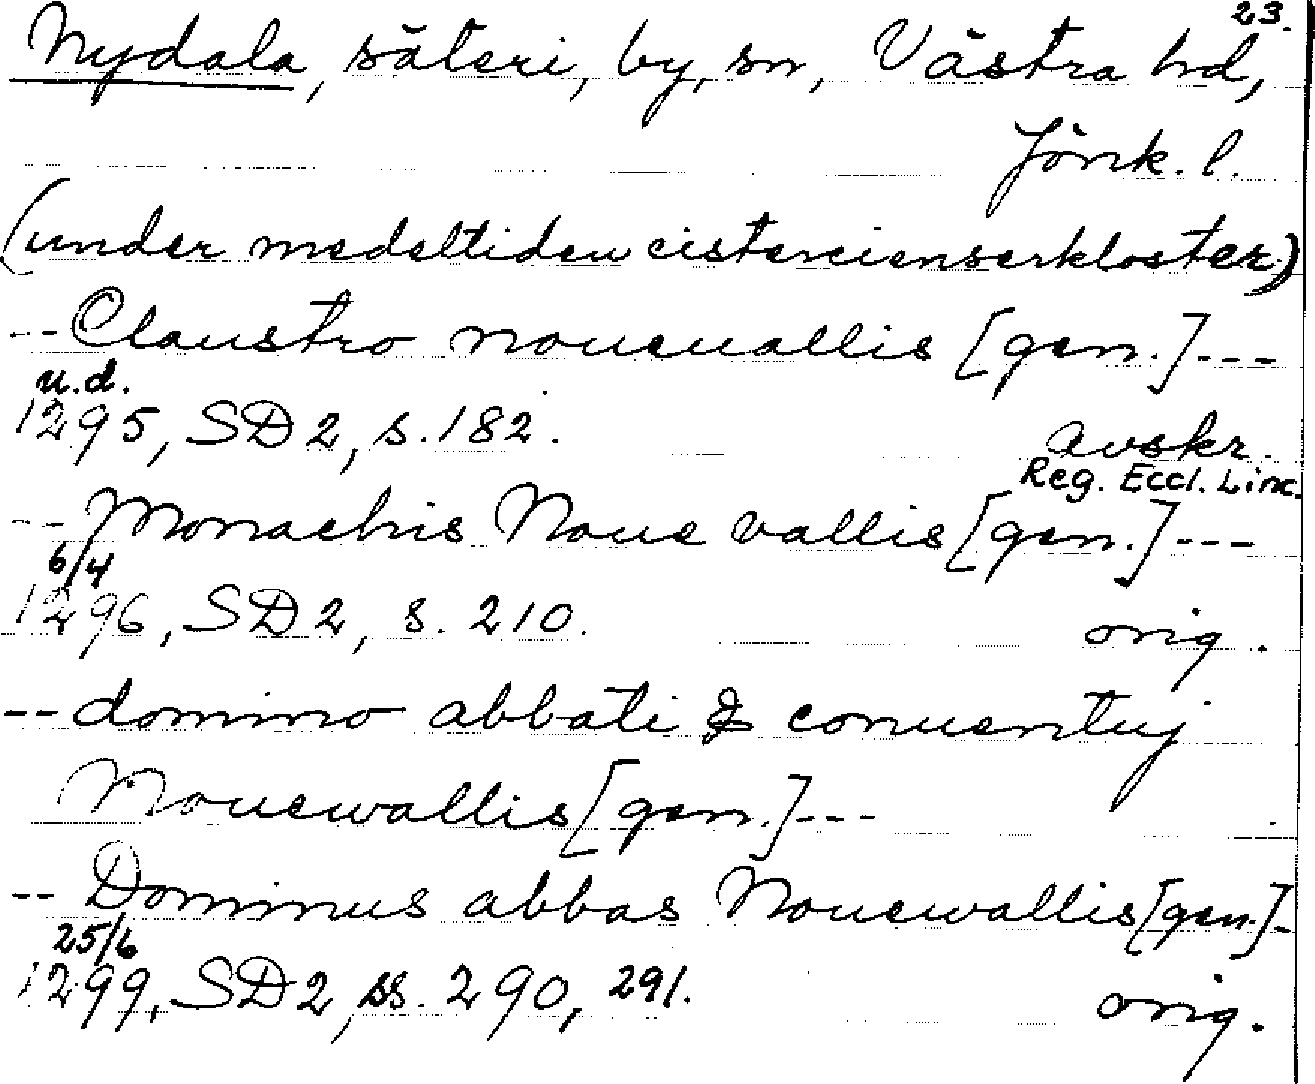 23.
Nydala, säteri, by, sn, Västra hd,
Jönk. l.
(under medeltiden cistercienserkloster)
-- Claustro noueuallis [gen.] ---
u.d.
1295, SD 2, s. 182. avskr.
Reg. Eccl. Linc.
-- Monachis Noue vallis [gen.] ---
6/4
1296, SD 2, s. 210. orig.
-- domino abbati & conuentuj
Nouewallis [gen.] ---
-- Dominus abbas Nouewallis [gen.] -
25/6
1299, SD 2, ss. 290, 291. orig.